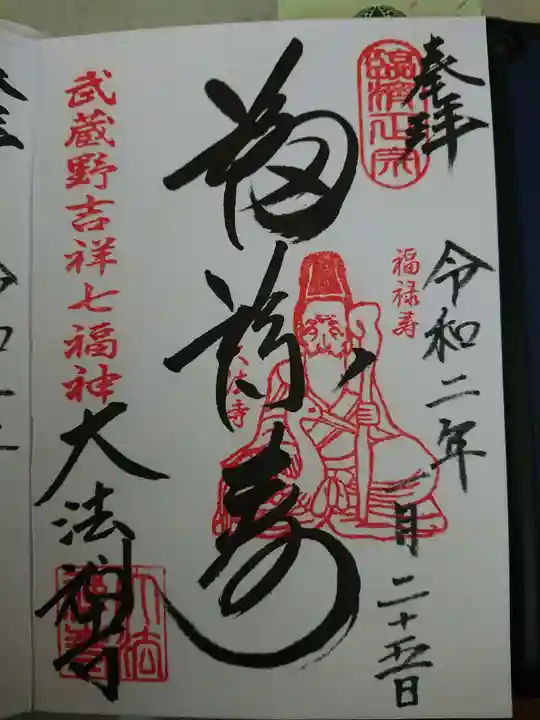 奉拝
臨済正宗
令和二年一月二十五日
福禄寿
福禄寿
大法寺
武蔵野吉祥七福神
大法禅寺